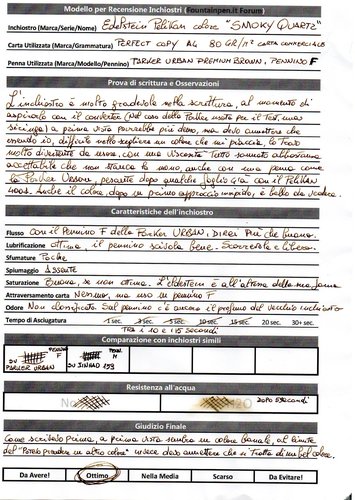 Modello per Recensione Inchiostri (Fountainpen.it Forum)
Inchiostro (Marca/Serie/Nome) Edelstein Pelikan colore "SMOKY QUARTZ"
Carta Utilizzata (Marca/Grammatura) PERFECT COPY A4 80 GR/m² CARTA COMMERCIALE
Penna Utilizzata (Marca/Modello/Pennino) PARKER URBAN PREMIUM BROWN, PENNINO F
Prova di scrittura e Osservazioni
L'inchiostro è molto gradevole nella scrittura, al momento di
aspirarlo con il converter (nel caso della Parker usata per il test, una
siringa) a prima vista potrebbe dire poco, ma devo ammettere che
essendo io, difficile nello scegliere un colore che mi piaccia, lo trovo
molto divertente da usare, con una viscosità tutto sommato abbastanza
accettabile che non stanca la mano anche con una penna come
la Parker Urban, pesante dopo qualche foglio già con il Pelikan
4001. Anche il colore, dopo un primo approccio insipido, è bello da vedere.
Caratteristiche dell'inchiostro
Flusso con il Pennino F della Parker URBAN, direi più che buono.
Lubrificazione ottima, il pennino scivola bene. Scorrevole e libero.
Sfumature Poche
Spiumaggio Assente
Saturazione Buona, se non ottima. L'Edelstein è all'altezza della sua fama
Attraversamento carta Nessuno, ma uso un pennino F
Odore Non classificato. Sul pennino c'è ancora il profumo del vecchio inchiostro
Tempo di Asciugatura 1 sec. 3 sec. 5 sec. 10 sec. 15 sec. 20 sec. 30+ sec.
TRA I 10 E I 15 secondi
Comparazione con inchiostri simili
PENN. F
SU PARKER URBAN
PENN. M
SU JINHAO 159
Resistenza all'acqua
No H2O
DOPO 5 secondi
Giudizio Finale
Come scrivevo prima, a prima vista sembra un colore banale al limite
del "Potevo prendere un altro colore" invece devo ammettere che si tratta di un bel colore.
Da Avere!
Ottimo
Nella Media
Scarso
Da Evitare!